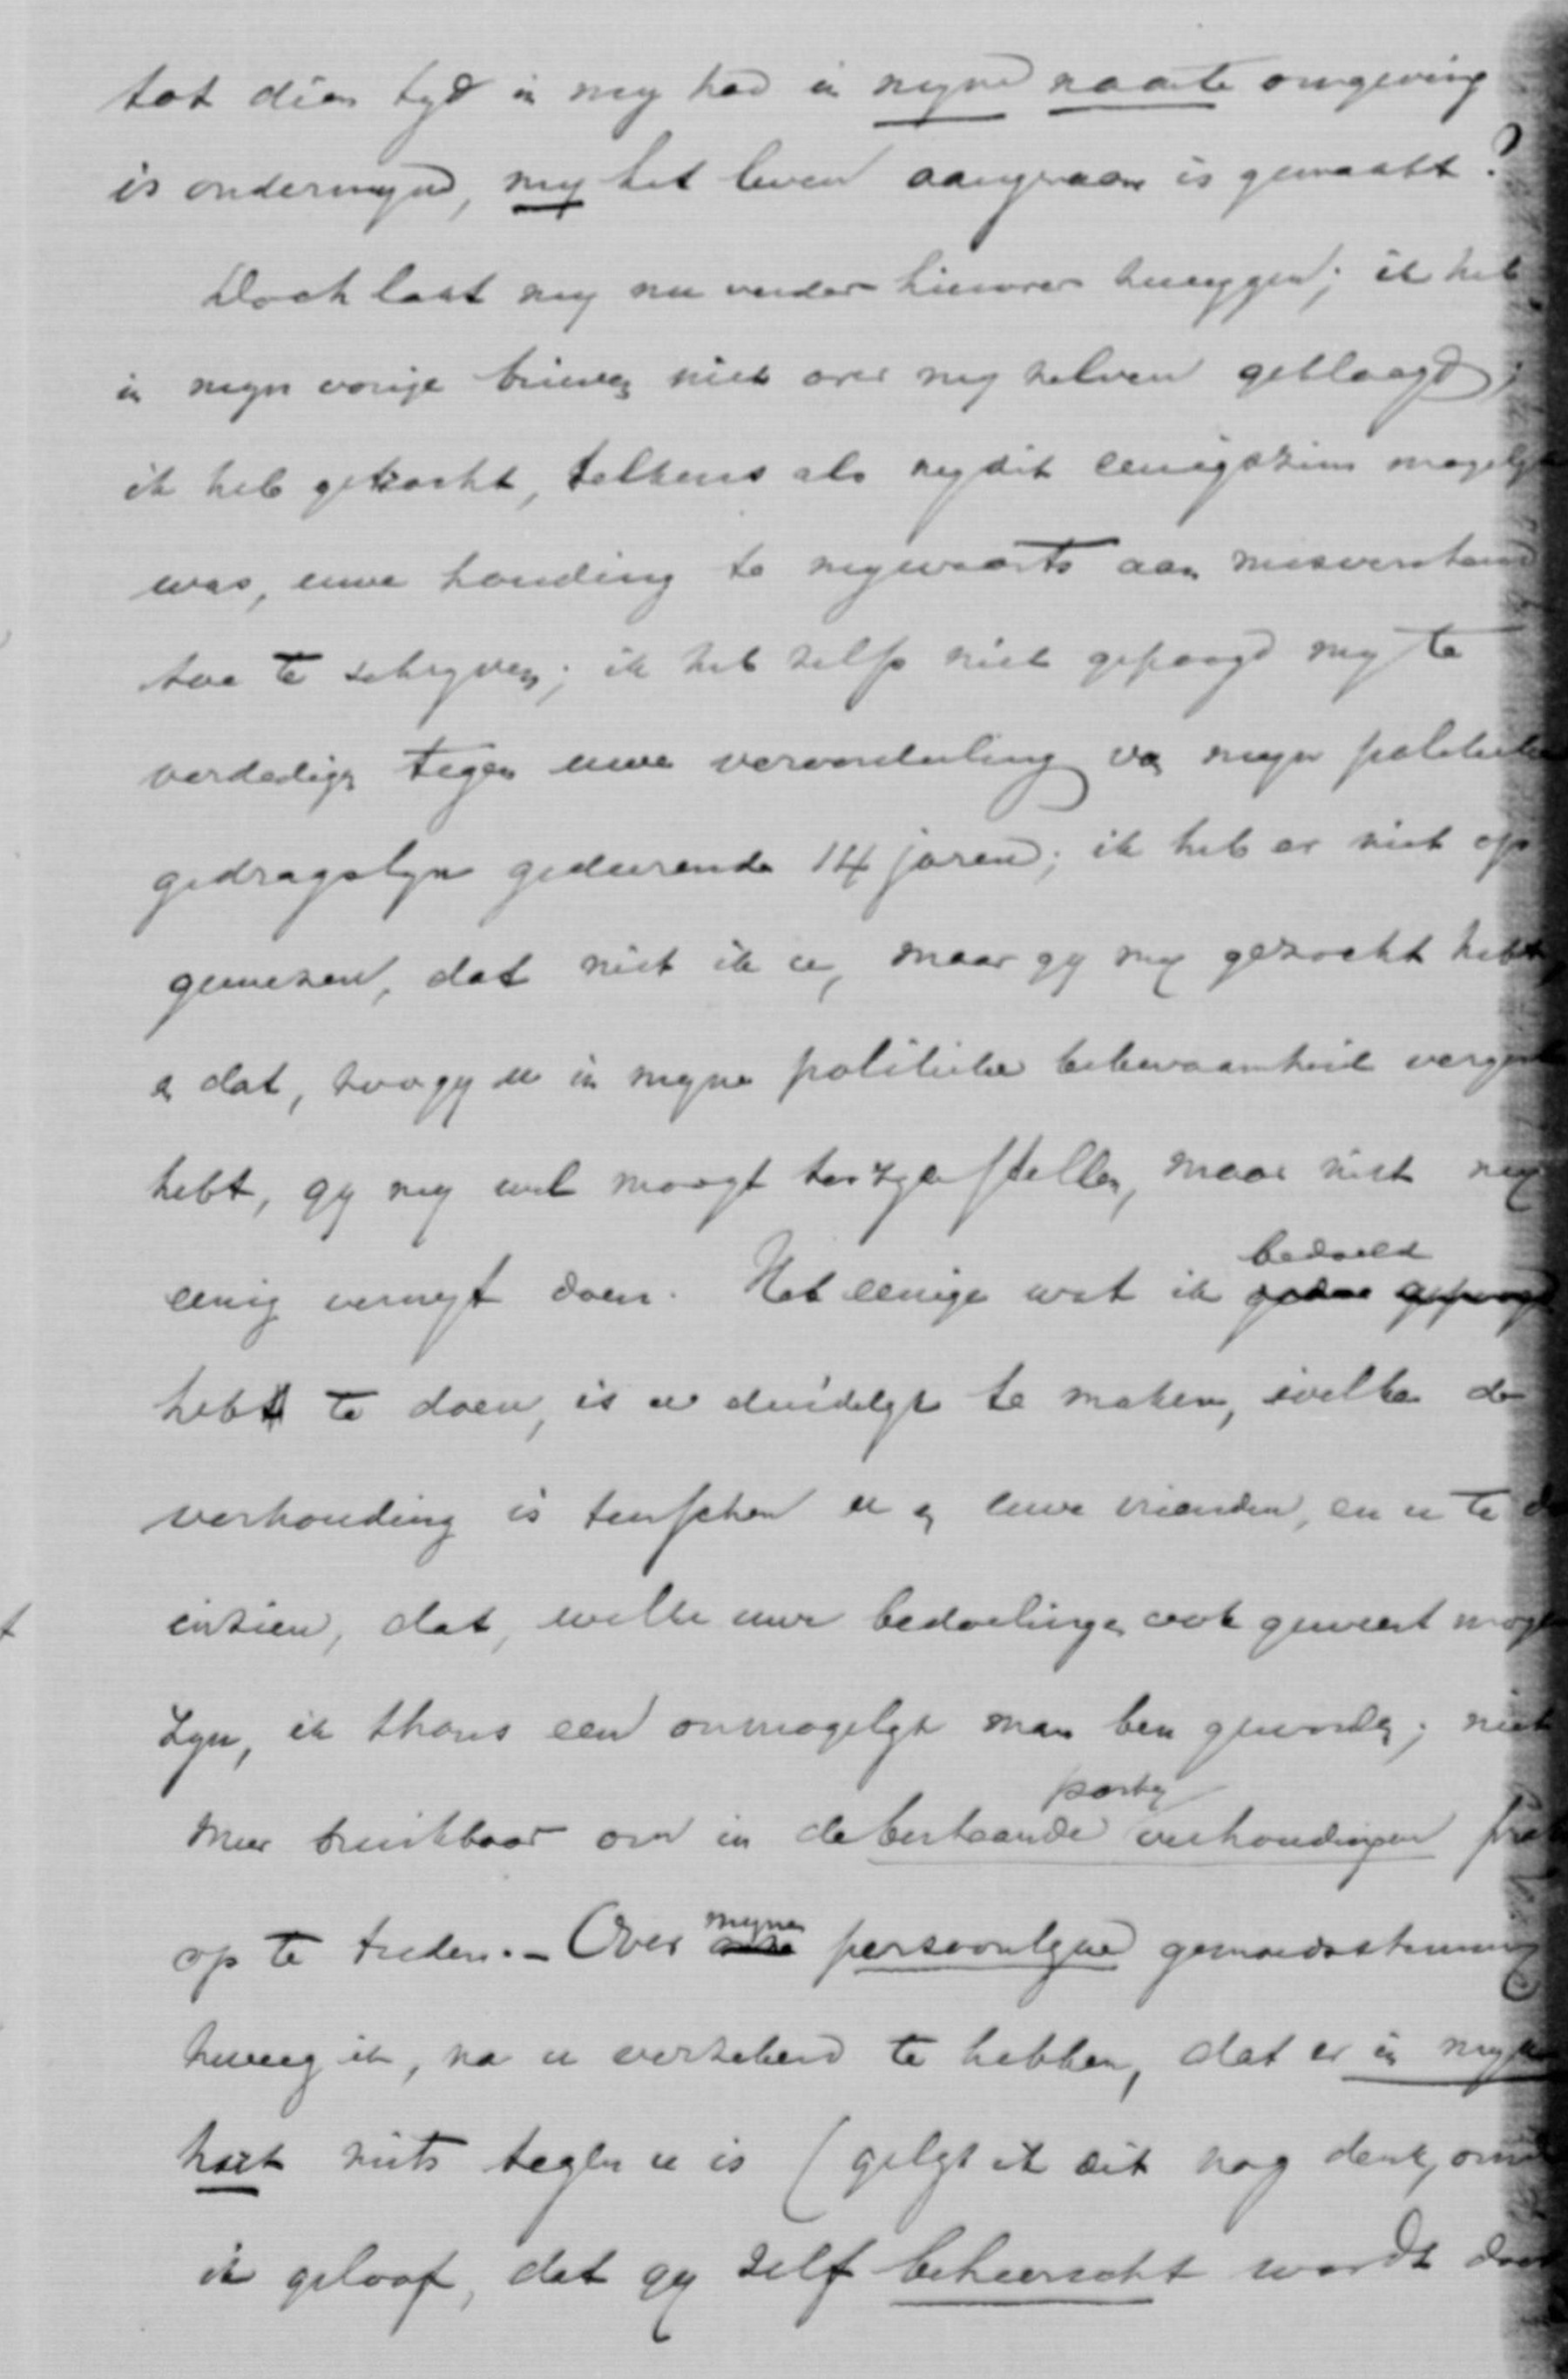 tot dien tyd in my had in myne naaste omgeving
is ondermynd, my het leven aangenaam is gemaakt?
Doch laat my nu verder hierover zwygen; ik heb
in myn vorige brieven niet over my zelven geklaagd;
ik heb getracht, telkens als my dit eenigszins mogelyk
was, uwe houding te mywaarts aan misverstand
toe te schryven; ik heb zelfs niet gepoogd my te
verdedigen tegen uwe veroordeeling van myn politieke
gedragslyn gedurende 14 jaren; ik heb er niet op
gewezen, dat niet ik u, maar gy my gezocht hebt,
en dat, zoo gy u in myne politieke bekwaamheid vergist
hebt, gy my wel moogt ter zyde stellen, maar niet my
eenig verwyt doen. Het eenige wat ik bedoeld
heb te doen, is u duidelyk te maken, welke de
verhouding is tusschen u en uwe vrienden, en u te doen
inzien, dat, welke uwe bedoelingen ook geweest mogen
zyn, ik thans een onmogelyk man ben geworden; niet
meer bruikbaar om in de bestaande party verhoudingen
op te treden. – Over myne persoonlyke gemoedsstemming
zweeg ik, na u verzekerd te hebben, dat er in myn
hart niets tegen u is (gelyk ik dit nog denk, omdat
ik geloof, dat gy zelf beheerscht wordt door